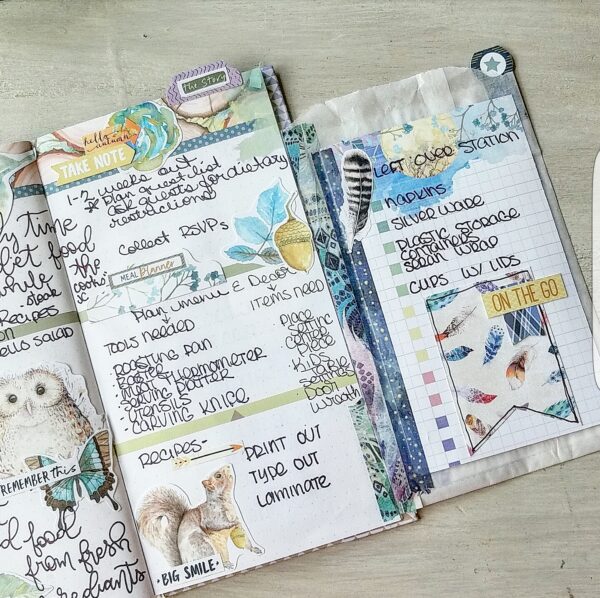 The Story
hello autumn
TAKE NOTE
1-2 weeks out
* Plan guest list
ask guests for dietary
restrictions
collect RSVPs
MEAL Planner
Plan menu & Decor
TOOLS needed
ITEMS need
ROASTING PAN
BASTER
MEAT THERMOMETER
CARVING PLATTER
UTENSILS
CARVING KNIFE
PLACE
SETTING
CENTER
PIECE
KIDS
TABLE
DOOR
WREATH
RECIPES-
PRINT OUT
TYPE OUT
LAMINATE
BIG SMILE
time
food
while
cooks
RECIPES
salad
REMEMBER this
food
from fresh
LEFT OVER STATION
NAPKINS
SILVERWARE
PLASTIC STORAGE
CONTAINERS
SARAN WRAP
CUPS W/ LIDS
ON THE GO